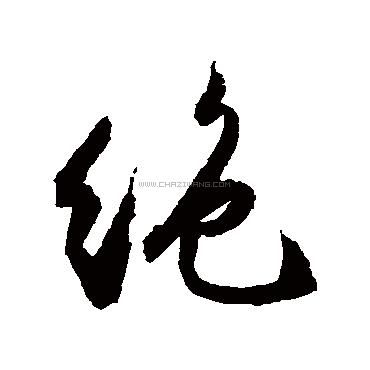 绝
WWW.CHAZIWANG.COM